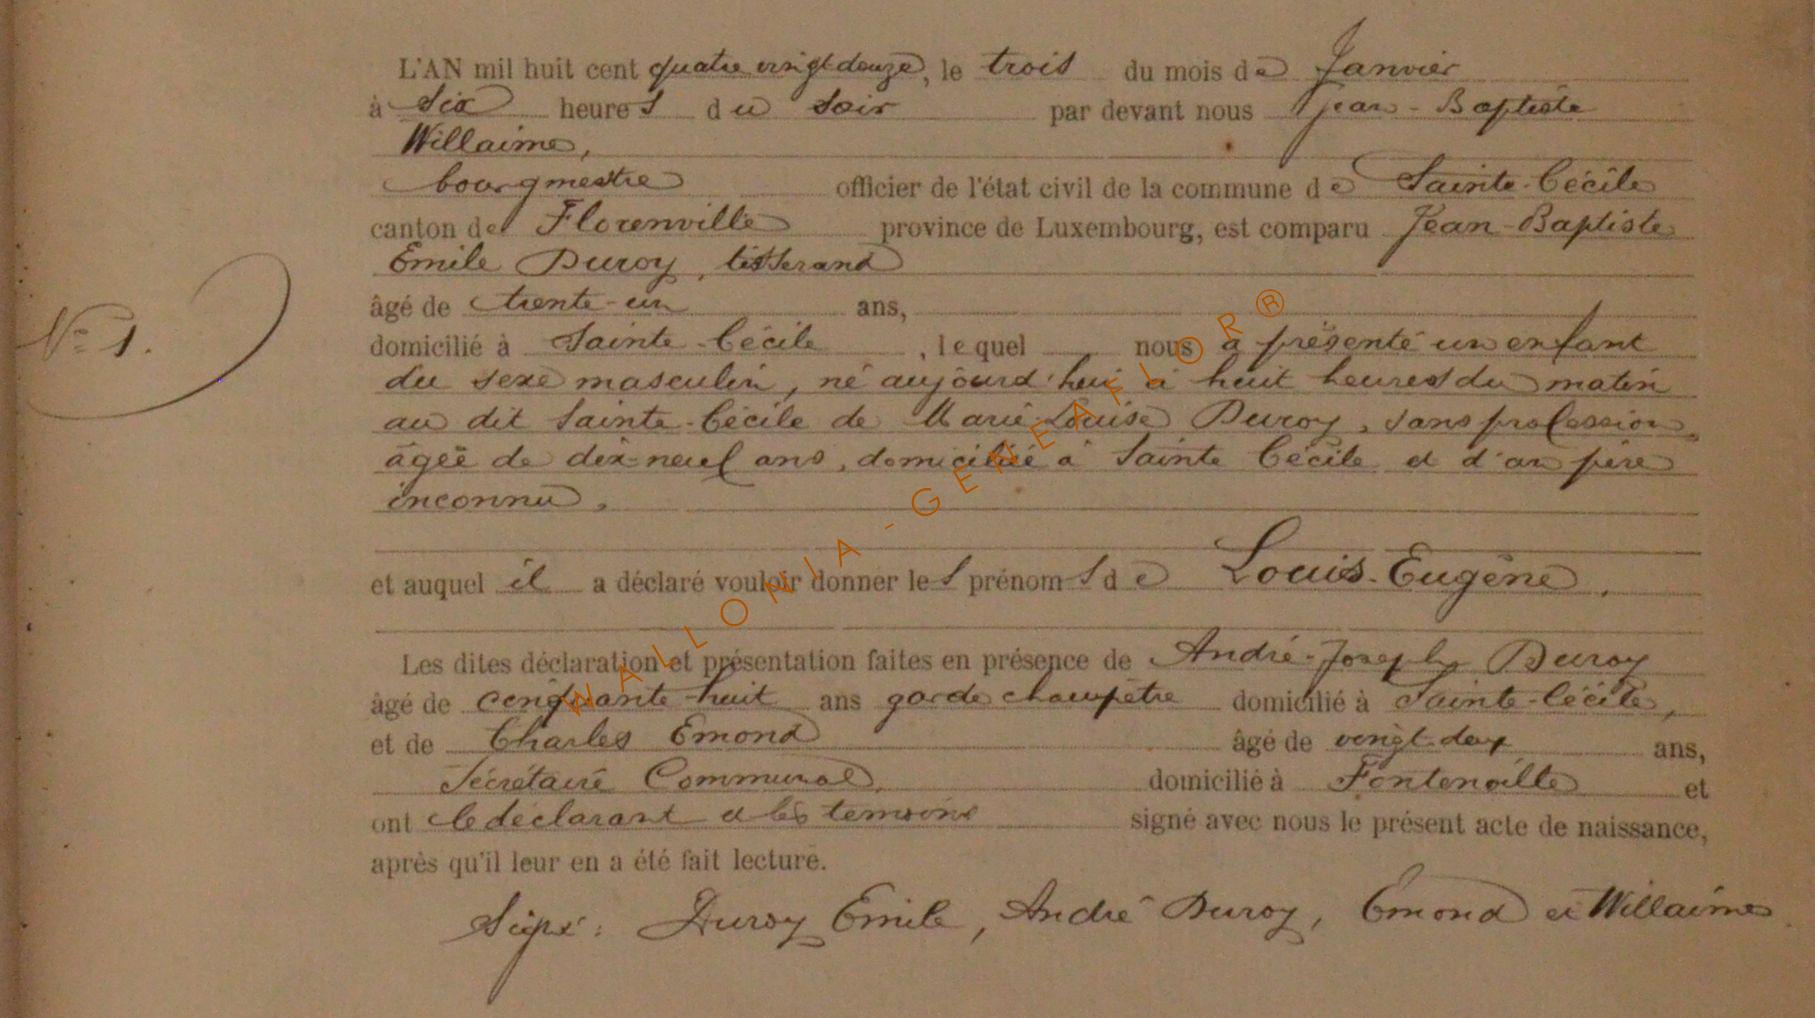 L'AN mil huit cent quatre vingt douze, le trois du mois de Janvier
à Six heures du soir par devant nous Jean-Baptiste
Willaime,
bourgmestre officier de l'état civil de la commune de Sainte-Cécile
canton de Florenville province de Luxembourg, est comparu Jean-Baptiste
Emile Duroy, tisserand
âgé de trente-un ans,
N° 1.
domicilié à Sainte-Cécile, lequel nous a présenté un enfant
du sexe masculin, né aujourd'hui à huit heures du matin
au dit Sainte-Cécile de Marie-Louise Duroy, sans profession,
âgée de dix-neuf ans, domiciliée à Sainte Cécile et d'un père
inconnu.
et auquel il a déclaré vouloir donner les prénoms de Louis-Eugène.
Les dites déclaration et présentation faites en présence de André-Joseph Duroy
âgé de cinquante-huit ans garde champêtre domicilié à Sainte-Cécile,
et de Charles Emond âgé de vingt-deux ans,
Secrétaire Communal, domicilié à Fontenoille et
ont le déclarant et les témoins signé avec nous le présent acte de naissance,
après qu'il leur en a été fait lecture.
Signé: Duroy Emile, André Duroy, Emond et Willaime
WALLONIA-GENEAFLOR®